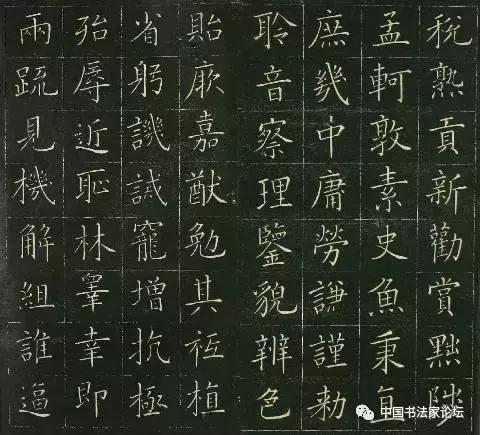 稅熟貢新勸賞黜陟
孟軻敦素史魚秉直
庶幾中庸勞謙謹勑
聆音察理鑒貌辨色
貽厥嘉猷勉其祗植
省躬譏誡寵增抗極
殆辱近恥林睾幸即
兩疏見機解組誰逼
中国书法家论坛